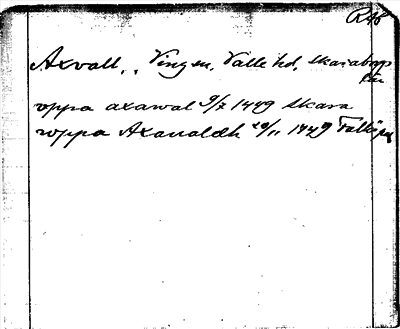 RAB
Axvall, „ Vingen, Valle hd, Skaraborgs
län
vppa axawal 9/7 1449 Skara
vppa Axaualdh 20/11 1449 Falköpg